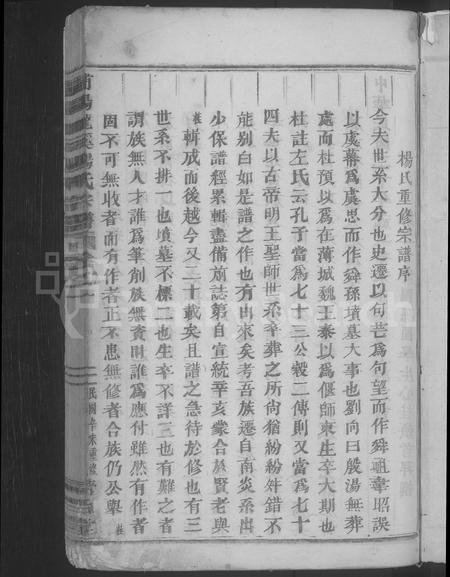 楊氏重修宗譜序
今夫世系大分也史遷以句芒為句望而作舜祖韋昭誤
以虞幕為虞思而作舜孫墳墓大事也劉向曰殷湯無葬
處而杜預以為在薄城魏王泰以為偃師東生卒大期也
杜註左氏云孔子當為七十三公穀二傳則又當為七十
四夫以古帝明王聖師世系卒葬之所尙猶紛紛舛錯不
能別白如是譜之作也有由來矣考吾族遷自南炎系出
少保譜經累輯盡備前誌第自宣統辛亥蒙合族賢老與
桂輯成而後越今又二十載矣且譜之急待於修也有三
世系不排一也墳墓不標二也生卒不詳三也有難之者
謂族無人才誰為筆削族無資財誰為應付雖然有作者
固不可無收者而有作者正不患無修者合族仍公舉桂
浦陽龍溪楊氏宗譜
民國辛未重修